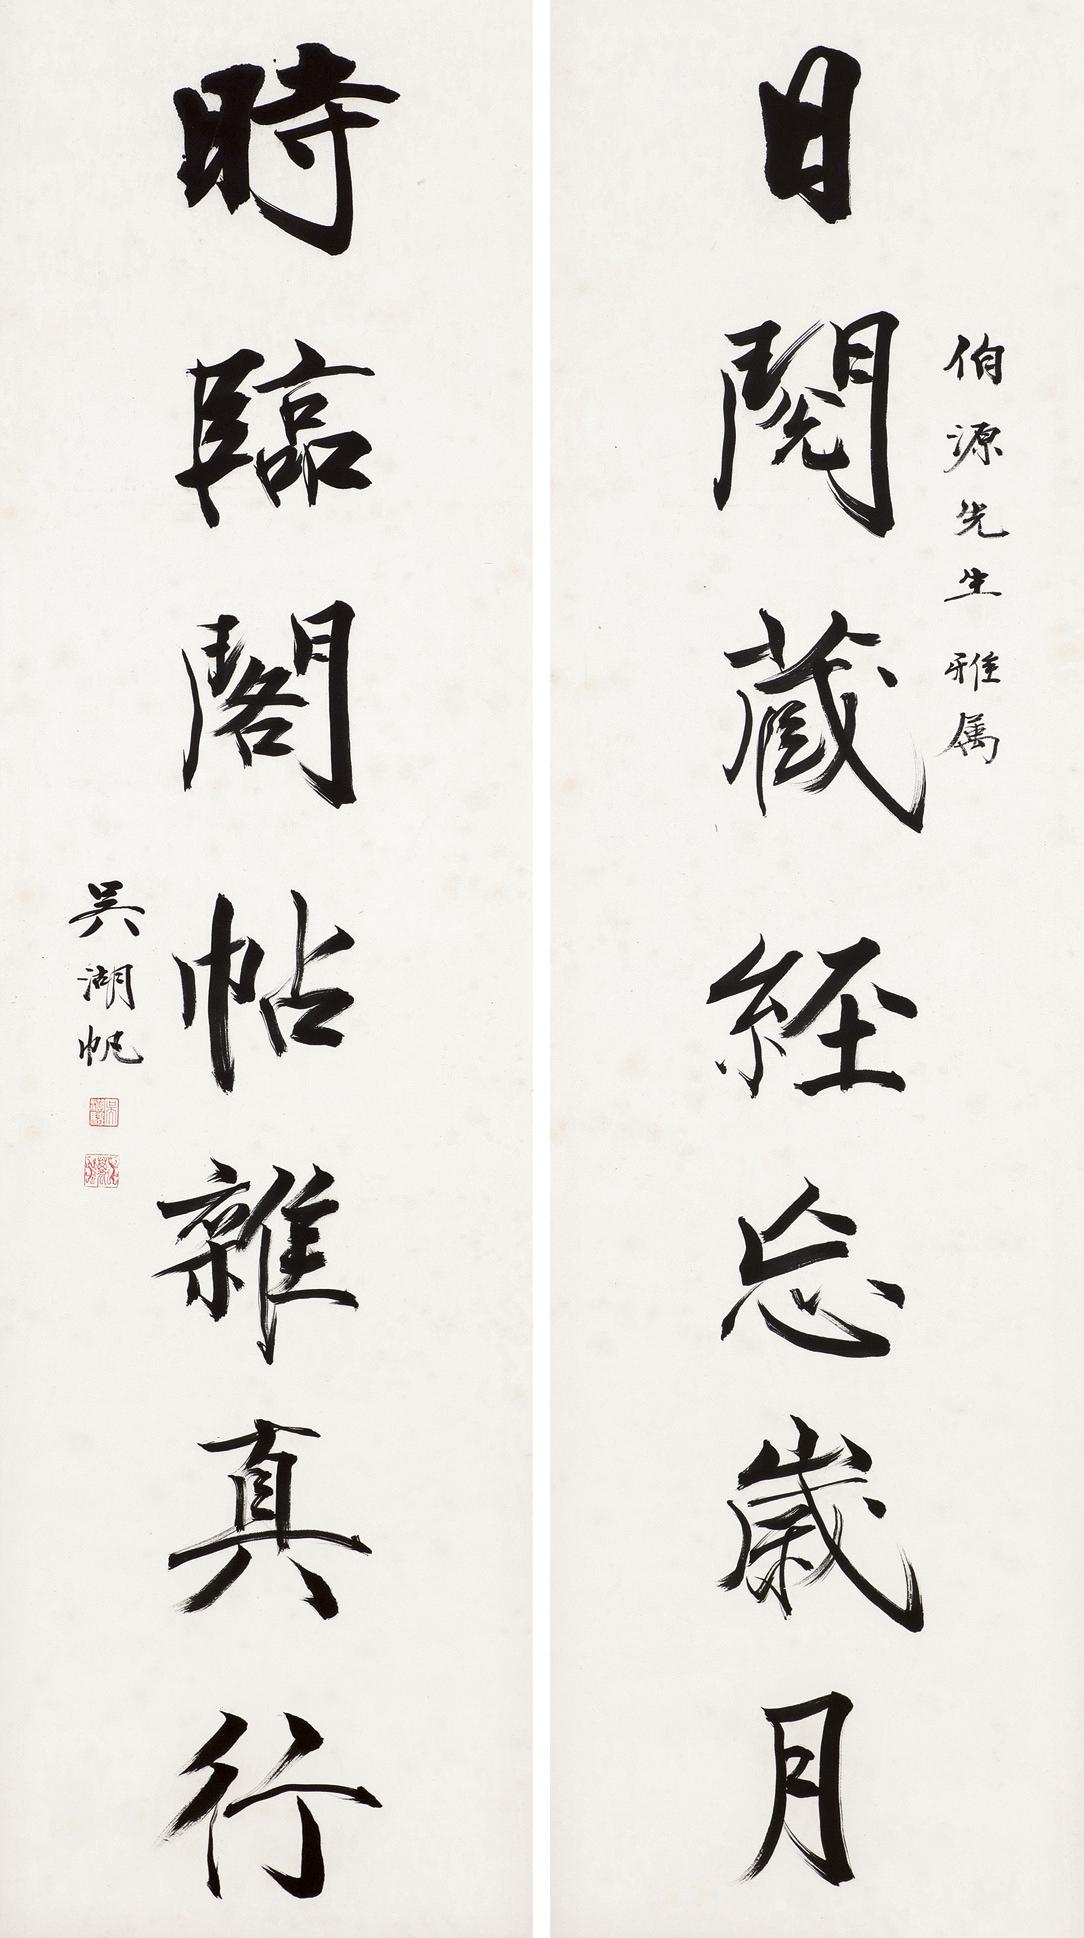 伯源先生雅属
日閱藏經忘歲月
時臨閣帖雜真行
吳湖帆